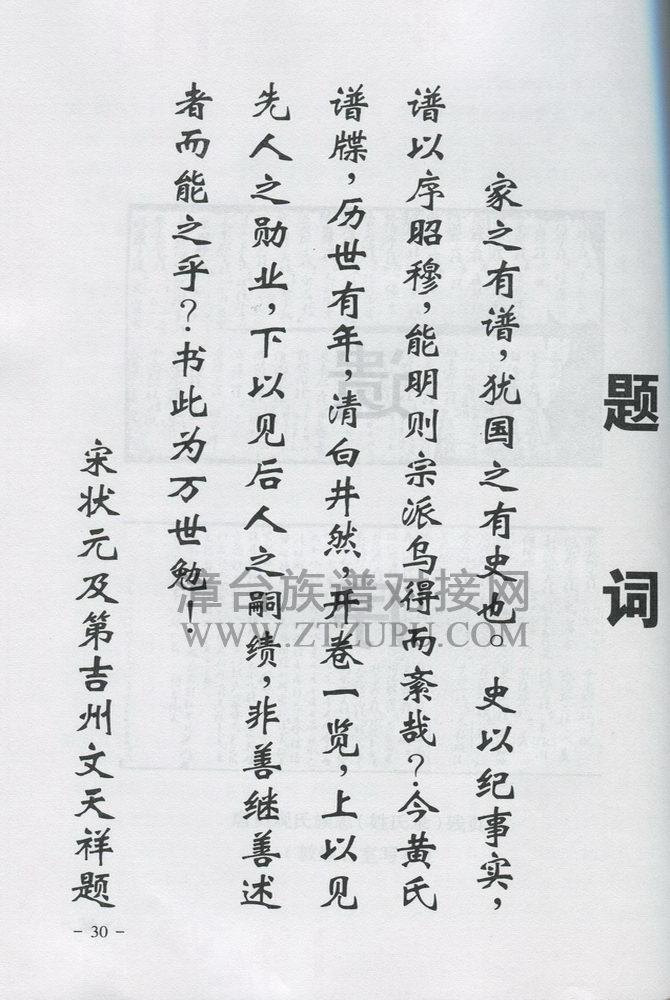 题词
家之有谱，犹国之有史也。史以纪事实，
谱以序昭穆，能明则宗派乌得而紊哉？今黄氏
谱牒，历世有年，清白井然，开卷一览，上以见
先人之勋业，下以见后人之嗣绩，非善继善述
者而能之乎？书此为万世勉！
宋状元及第吉州文天祥题
- 30 -
漳台族谱对接网
WWW.ZTZUPU.COM